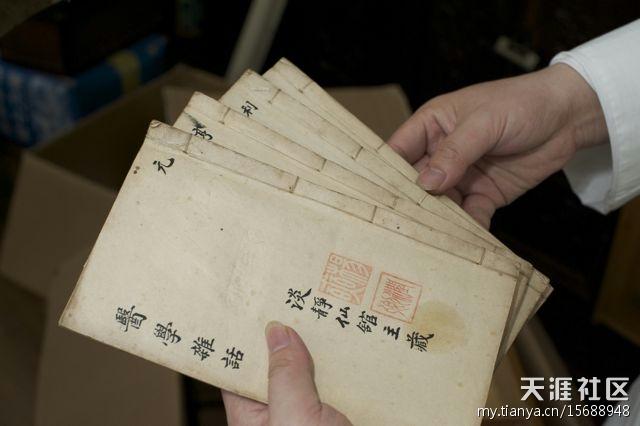 元
亨
利
醫學雜話
淡靜仙館主藏
天涯社区
my.tianya.cn/15688948